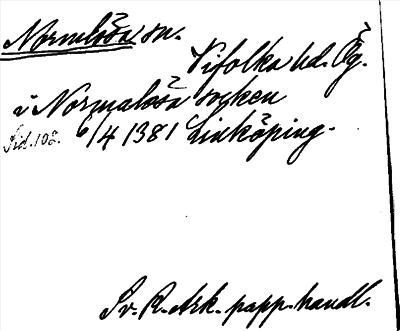 Normlösa sn.
Vifolka hd. Ög.
i Normaloså soken
Sid. 102. 6/4 1381 Linköping.
Sv. R. Ark. papp. handl.